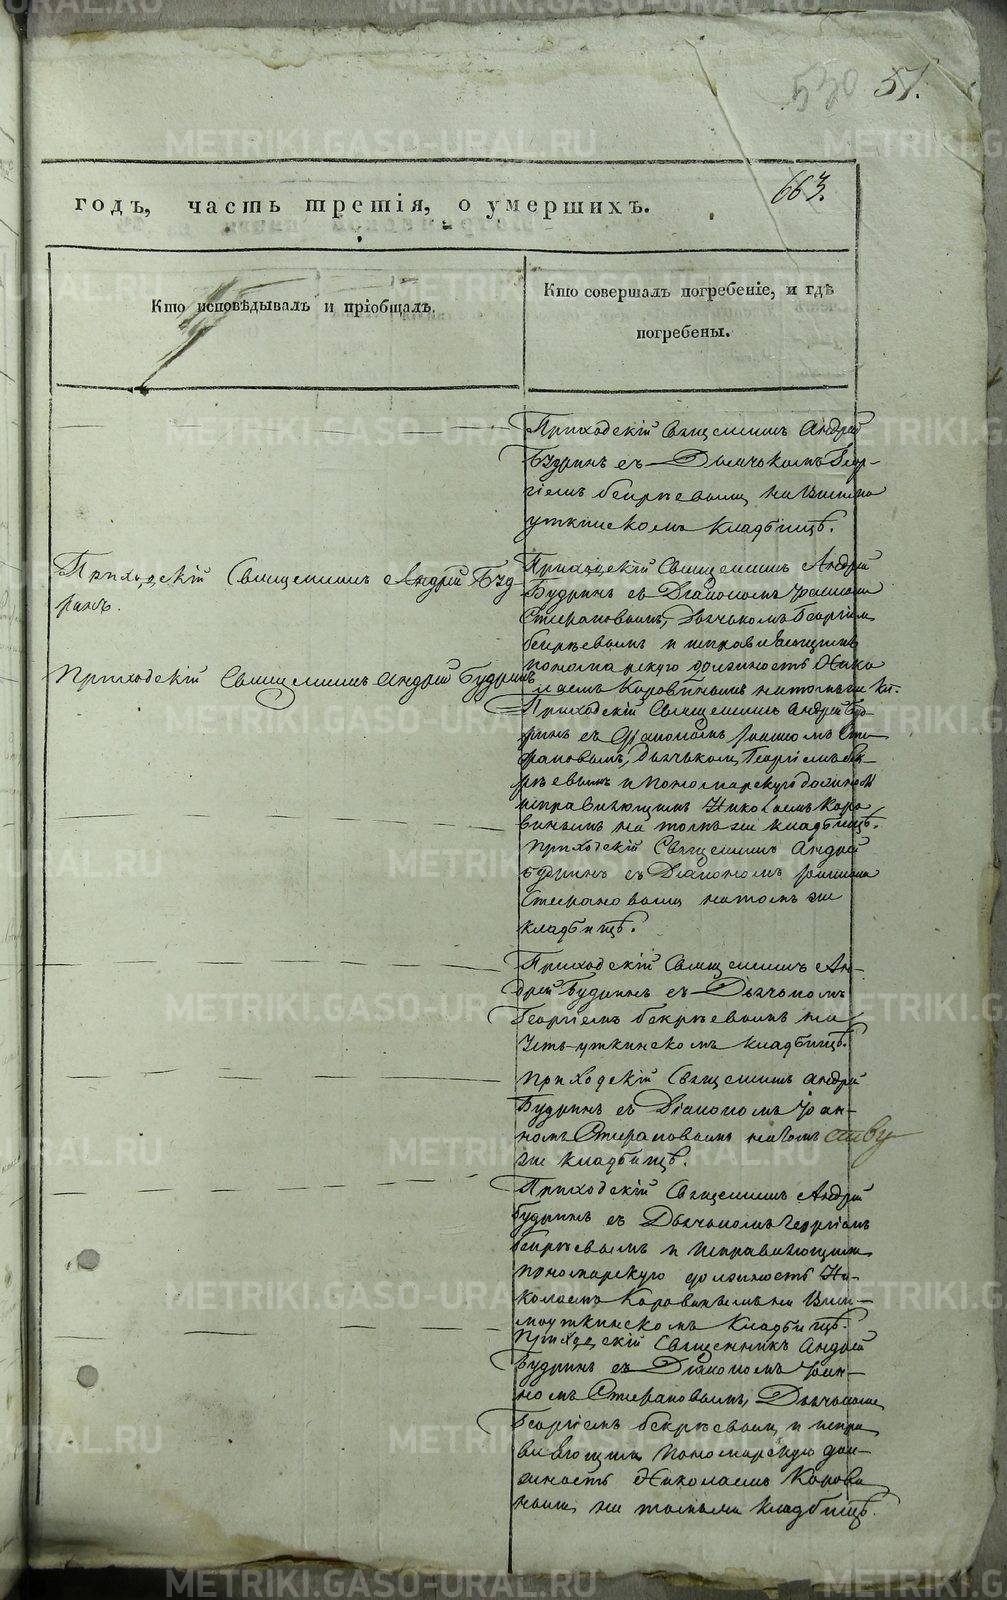 530 51.
663.
годъ, часть третія, о умершихъ.
Кто исповѣдывалъ и пріобщалъ.
Кто совершалъ погребеніе, и гдѣ
погребены.
Приходскій Священникъ Андрей
Будринъ съ Дьячькомъ Геор-
гіемъ на
уткинскомъ Кладбищѣ.
Приходскій Священникъ Андрей Буд-
ринъ.
Приходскій Священникъ Андрей
Будринъ съ Діакономъ Іоанномъ
Дьячькомъ Георгіем
и исправляющимъ
пономарскую должность Нико
лаемъ Коровинымъ на томъ же Кл.
Приходскій Священникъ Андрей Будринъ
Приходскій Священникъ Андрей Бу-
дринъ съ Діакономъ Іоанномъ
Дьячькомъ Георгіемъ
и Пономарскую должность
исправляющимъ Николаемъ Коро
винымъ на томъ же кладбищѣ.
Приходскій Священникъ Андрей
Будринъ съ Діакономъ Іоанномъ
на томъ же
кладбищѣ.
Приходскій Священникъ Ан-
дрей Будринъ съ Дьячькомъ
Георгіемъ на
Усть-уткинскомъ кладбищѣ.
Приходскій Священникъ Андрей
Будринъ съ Діакономъ Іоан-
номъ на томъ
же кладбищѣ.
Приходскій Священникъ Андрей
Будринъ съ Дьячькомъ Георгіемъ
и исправляющим
пономарскую должность Ни-
колаемъ Коровинымъ на
уткинскомъ Кладбищѣ.
Приходскій Священникъ Андрей
Будринъ съ Діакономъ Іоан-
номъ Дьячькомъ
Георгіемъ и испра
вляющимъ Пономарскую дол-
жность Николаемъ Корови
нымъ на томъ же кладбищѣ.
METRIKI.GASO-URAL.RU